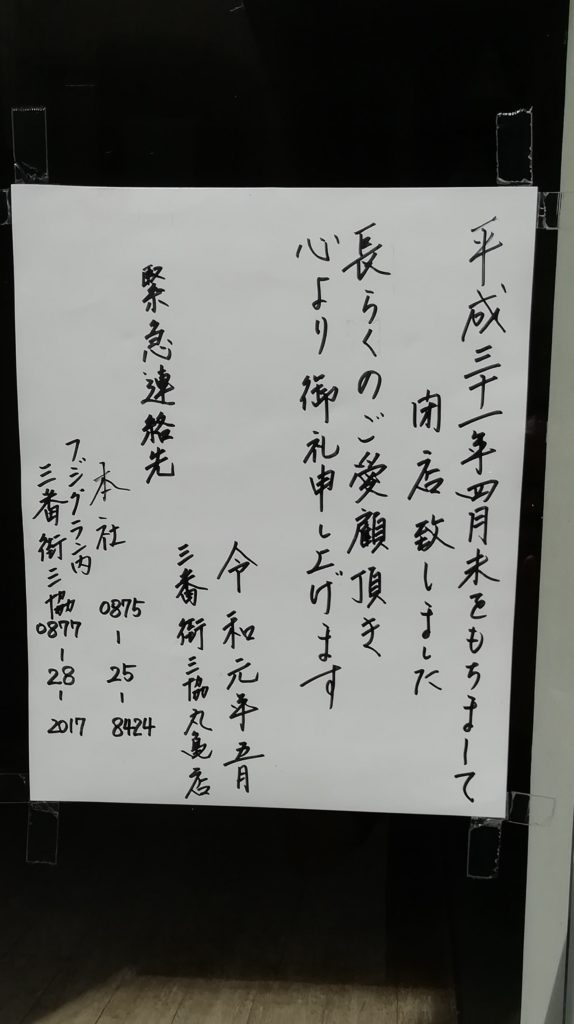 平成三十一年四月末をもちまして
閉店致しました
長らくのご愛顧頂き
心より御礼申し上げます
令和元年五月
三番街三協丸亀店
緊急連絡先
本社 0875-25-8424
フジグラン内
三番街三協 0877-28-2017